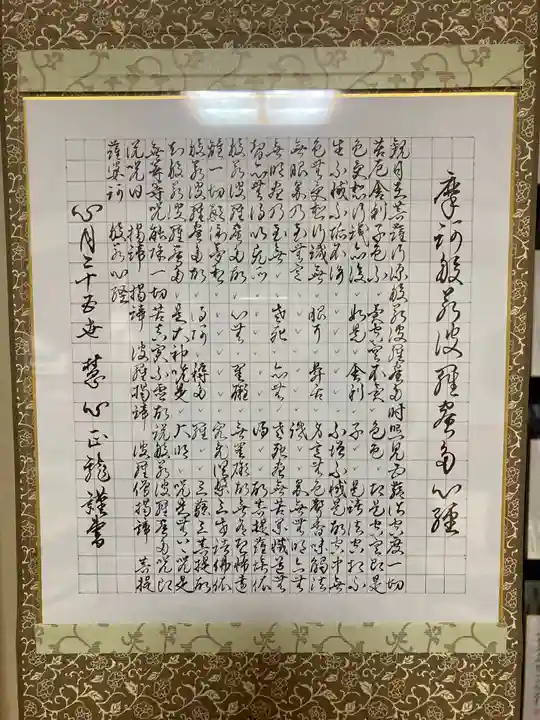 摩訶般若波羅蜜多心経
観自在菩薩行深般若波羅蜜多時照見五蘊皆空度一切
苦厄舎利子色不異空空不異色色即是空空即是
色受想行識亦復如是舎利子是諸法空相不
生不滅不垢不浄不増不減是故空中無
色無受想行識無眼耳鼻舌身意無色声香味触法
無眼界乃至無意識界無無明亦無
無明尽乃至無老死亦無老死尽無苦集滅道無
智亦無得以無所得故菩提薩埵依
般若波羅蜜多故心無罣礙無罣礙故無有恐怖遠
離一切顛倒夢想究竟涅槃三世諸佛依
般若波羅蜜多故得阿耨多羅三藐三菩提故
知般若波羅蜜多是大神呪是大明呪是無上呪是
無等等呪能除一切苦真実不虚故説般若波羅蜜多呪即
説呪曰 羯諦 羯諦 波羅羯諦 波羅僧羯諦 菩提
薩婆訶 般若心経
心月二十五世慧心正龍謹書